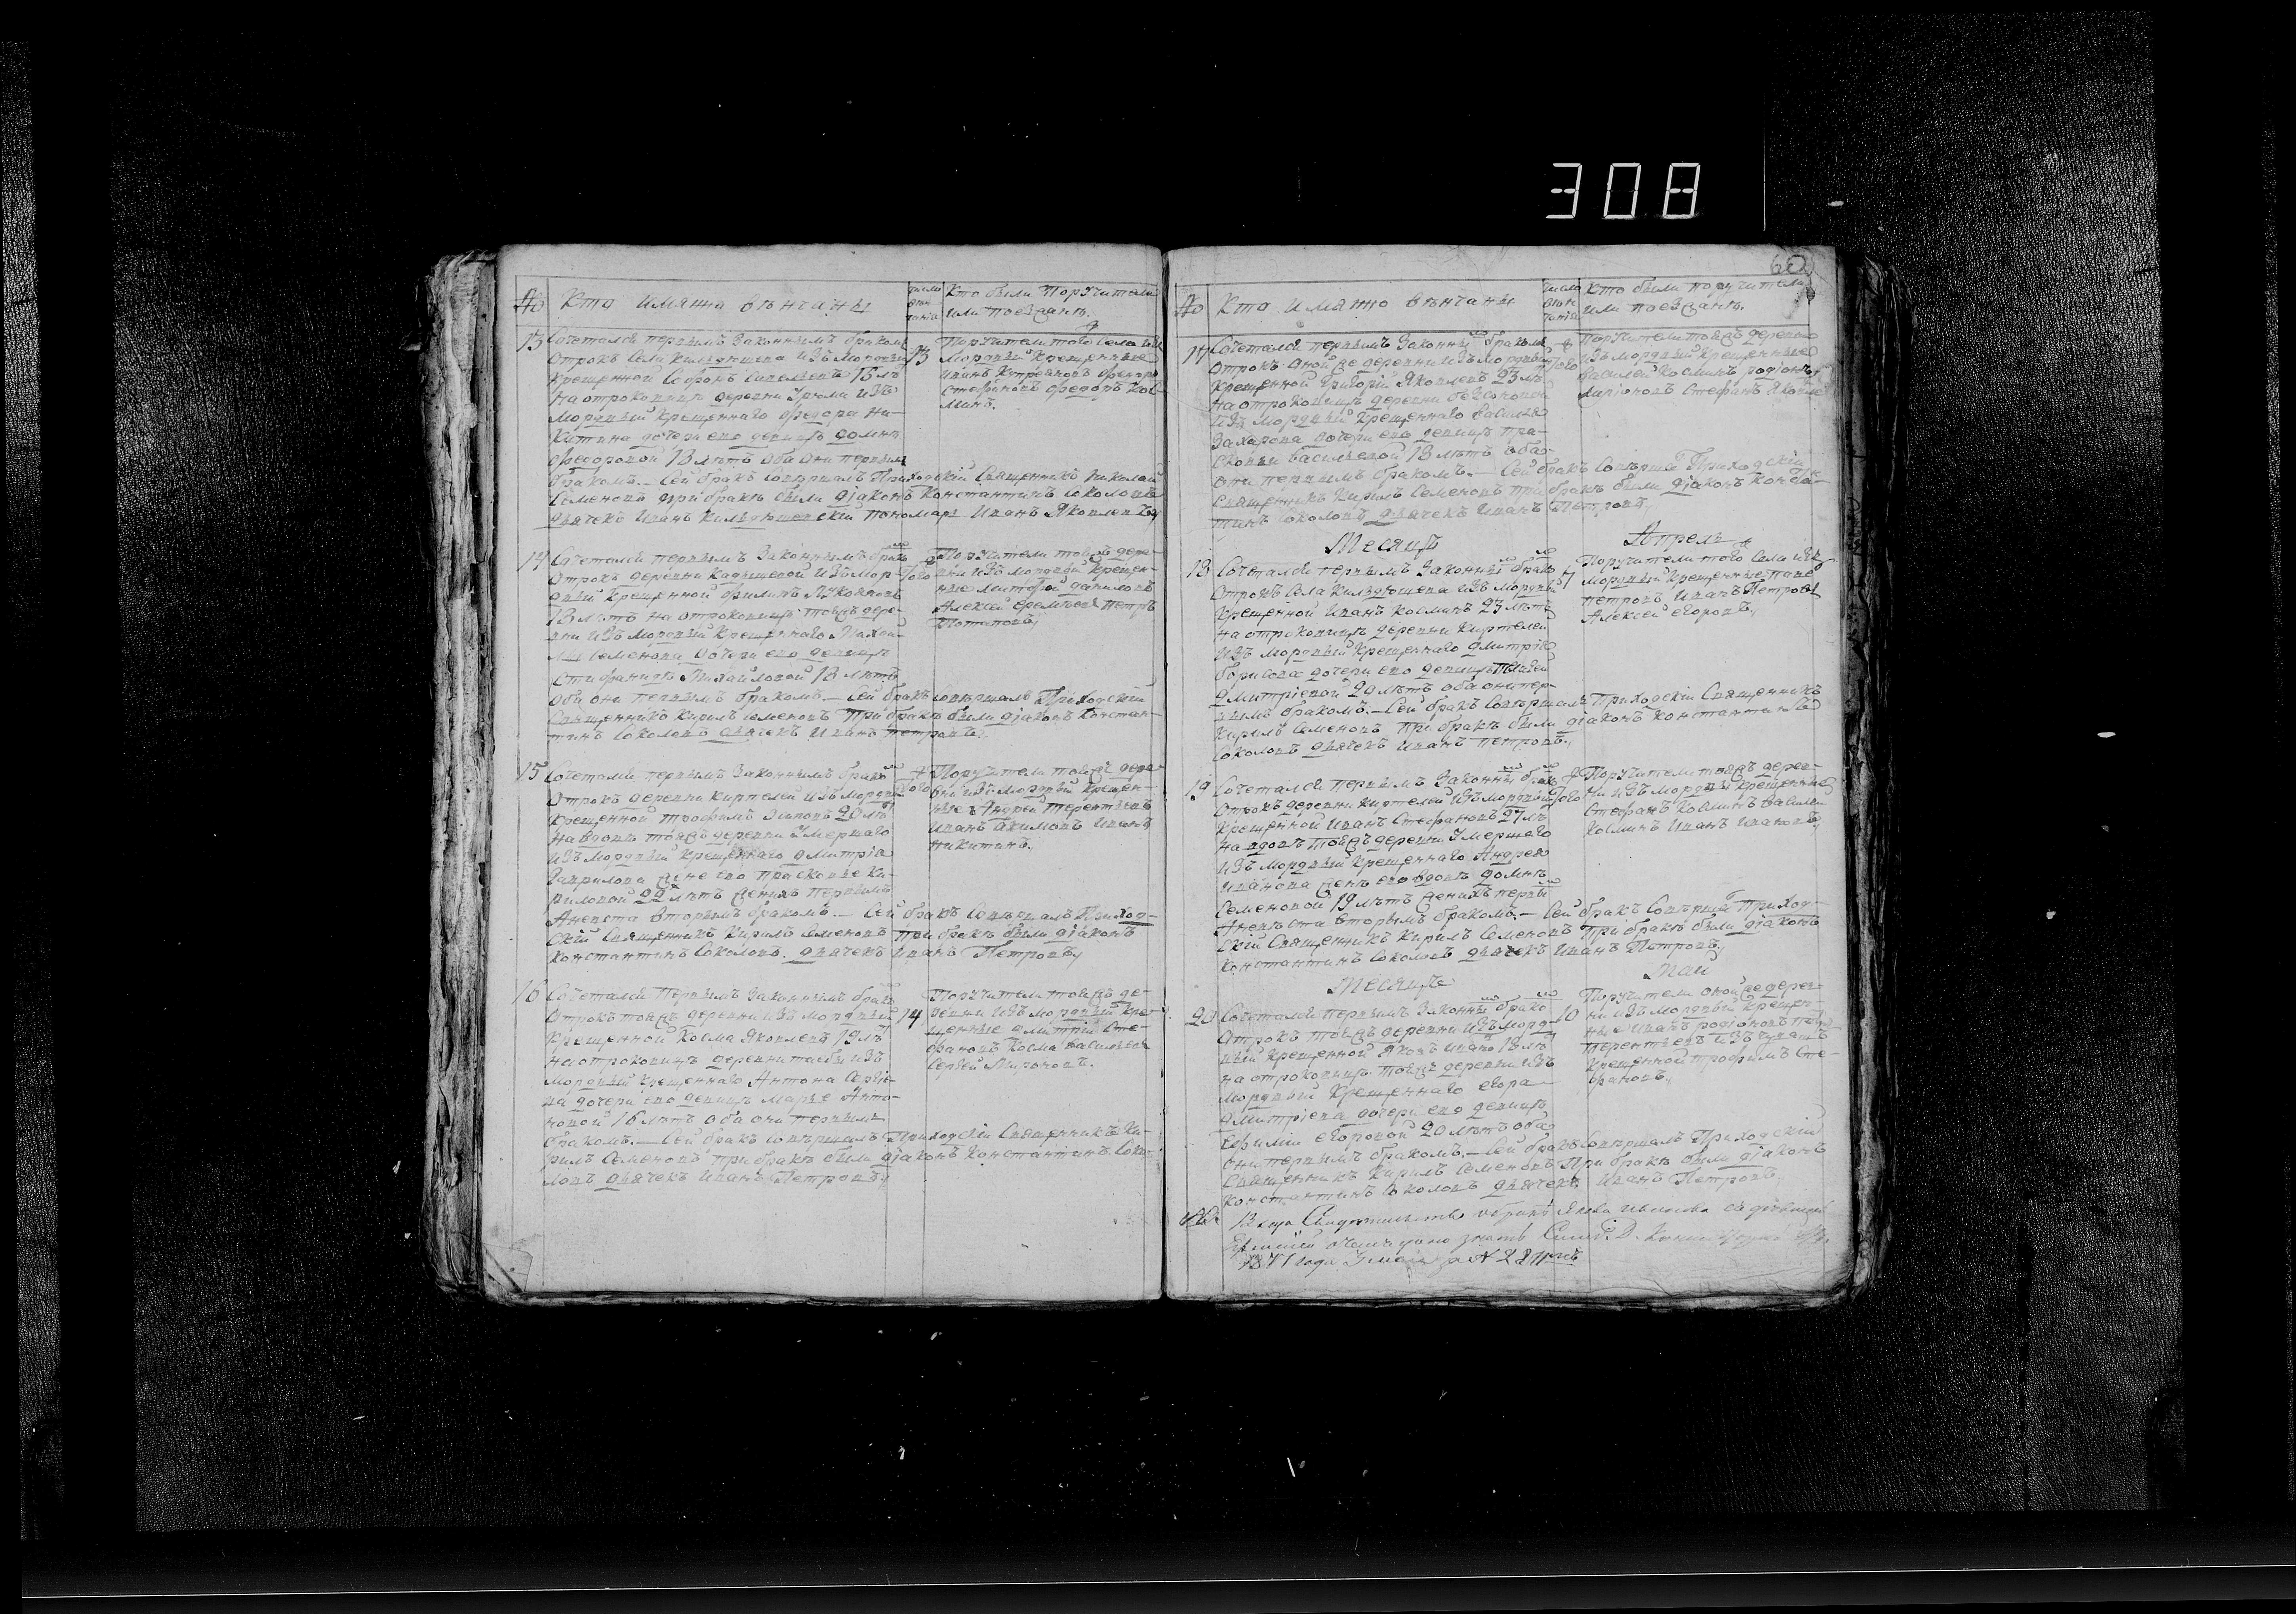 308
60
№ Кто имянно вѣнчаны
число вѣнчанія
Кто были Поручители
или поезжанѣ.
13 Сочетался первымъ Законнымъ бракомъ
Отрокъ Села Кильдюшева изъ мордвы
Крещенной Софронъ 18 лѣ
на отроковицѣ деревни изъ
мордвый Крещеннаго Федора Ни-
китина дочери ево девицѣ Домнѣ
Федоровой 18 лѣтъ оба они первымъ
бракомъ. — Сей бракъ Совершалъ Приходскій Священникъ Николай
Семеновъ при бракѣ были діаконъ Константинъ Соколовъ
дьячекъ Иванъ Кильдюшевскій пономарь Иванъ Яковлевъ
13
Поручители того Села изъ
Мордвый Крещенные
Иванъ Федоръ
Стефановъ Федоръ Кос-
минъ.
14 Сочетался первымъ Законнымъ бракомъ
Отрокъ деревни Кадышевой изъ Мор-
двый Крещенной Филипъ
18 лѣтъ на отроковицѣ тоежъ дере-
вни изъ мордвый Крещеннаго Михай-
лы Семенова дочери ево девицѣ
Стефанидѣ Михайловой 18 лѣтъ
Оба они первымъ бракомъ. — Сей бракъ Совершалъ Приходскій
Священникъ Кирилъ Семеновъ При бракѣ были діаконъ Констан-
тинъ Соколовъ дьячекъ Иванъ Петровъ.
Того
Поручители тоежъ дере-
вни изъ мордвый Крещен-
ные Митрофанъ Даниловъ
Алексей Еремѣевъ Петръ
Потаповъ
15 Сочетался первымъ Законнымъ бракомъ
Отрокъ деревни Киртелей изъ Мордвый
Крещенной Трофимъ 20 лѣ
на вдовѣ тоежъ деревни Умершаго
изъ мордвый Крещеннаго Дмитрія
Гаврилова жене ево Прасковье Ки-
риловой 22 лѣтъ женихъ первымъ
Аневѣста вторымъ бракомъ. — Сей бракъ Совершалъ Приход-
скій Священникъ Кирилъ Семеновъ при бракѣ были діаконъ
Константинъ Соколовъ. дьячекъ Иванъ Петровъ
Того
Поручители тоежъ дере-
вни изъ Мордвый Крещен-
ные Андрей Терентьевъ
Иванъ Акимовъ Иванъ
Никитинъ.
16 Сочетался Первымъ Законнымъ бракомъ
Отрокъ тоежъ деревни изъ мордвый
Крещенной Косма Яковлевъ 19 лѣ
на отроковицѣ деревни изъ
Мордвый Крещеннаго Антона Сергѣе-
ва дочери ево девицѣ Марье Анто-
новой 16 лѣтъ оба они первымъ
бракомъ. — Сей бракъ Совершалъ Приходскій Священникъ Ки-
рилъ Семеновъ при бракѣ были діаконъ Константинъ Соко-
ловъ дьячекъ Иванъ Петровъ
14
Поручители тоежъ де-
ревни изъ мордвый Кре-
щенные Дмитрій Сте-
фановъ Косма Васильевъ
Сергей Мироновъ.
№ Кто имянно вѣнчаны
число вѣнчанія
Кто были поручители
или поезжанѣ.
17 Сочетался первымъ Законнымъ бракомъ
Отрокъ оной же деревни изъ мордвый
Крещенной Григорій Яковлевъ 23 лѣ
на отроковицѣ деревни
изъ мордвый Крещеннаго Василья
Захарова дочери ево девицѣ Пра-
сковьи Васильевой 18 лѣтъ оба
они первымъ бракомъ. — Сей бракъ Совершалъ Приходскій
Священникъ Кирилъ Семеновъ при бракѣ были діаконъ Констан-
тинъ Соколовъ дьячекъ Иванъ Петровъ
Того
Поручители тоежъ деревни
изъ мордвый Крещенные
Василей Косминъ Родіонъ
Ларіоновъ Стефанъ Яковлевъ
Месяцъ Апрель
18 Сочетался первымъ Законнымъ бракомъ
Отрокъ Села Кильдюшева изъ мордвы
Крещенной Иванъ Косминъ 23 лѣтъ
на отроковицѣ деревни Киртелей
изъ мордвый Крещеннаго Дмитрія
Борисова дочери ево девицѣ
Дмитріевой 20 лѣтъ оба они пер-
вымъ бракомъ. — Сей бракъ Совершалъ Приходскій Священникъ
Кирилъ Семеновъ При бракѣ были діаконъ Константинъ
Соколовъ дьячекъ Иванъ Петровъ.
7
Поручители того Села изъ
Мордвый Крещенные
Петровъ Иванъ Петровъ
Алексей Егоровъ
19 Сочетался Первымъ Законнымъ бракомъ
Отрокъ деревни Киртелей изъ мордвый
Крещенной Иванъ Стефановъ 27 лѣ
на вдовѣ тоежъ деревни Умершаго
изъ мордвый Крещеннаго Андрея
Иванова женѣ ево вдовѣ Домнѣ
Семеновой 19 лѣтъ женихъ первымъ
Аневѣста вторымъ бракомъ. — Сей бракъ Совершалъ Приход-
скій Священникъ Кирилъ Семеновъ При бракѣ были діаконъ
Константинъ Соколовъ дьячекъ Иванъ Петровъ
Того
Поручители тоежъ дерев-
ни изъ мордвы Крещенные
Стефанъ Косминъ Василей
Косминъ Иванъ Ивановъ
Месяцъ Май
20 Сочетался Первымъ Законнымъ бракомъ
Отрокъ тоежъ деревни изъ Морд-
вый Крещенной Яковъ Ивановъ 18 лѣ
на отроковицѣ тоежъ деревни изъ
мордвый Крещеннаго Егора
Дмитріева дочери ево девицѣ
Ефиміи Егоровой 20 лѣтъ оба
они первымъ бракомъ. — Сей бракъ Совершалъ Приходскій
Священникъ Кирилъ Семеновъ При бракѣ были діаконъ
Константинъ Соколовъ дьячекъ Иванъ Петровъ
10
Поручители оной же дерев-
ни изъ Мордвый Крещен-
ные Иванъ Родіоновъ
Терентьевъ изъ чувашъ
Крещенной Трофимъ Сте-
фановъ
Свидѣтельство о бракѣ Якова Иванова съ девицей
Ефиміей
года мая за №